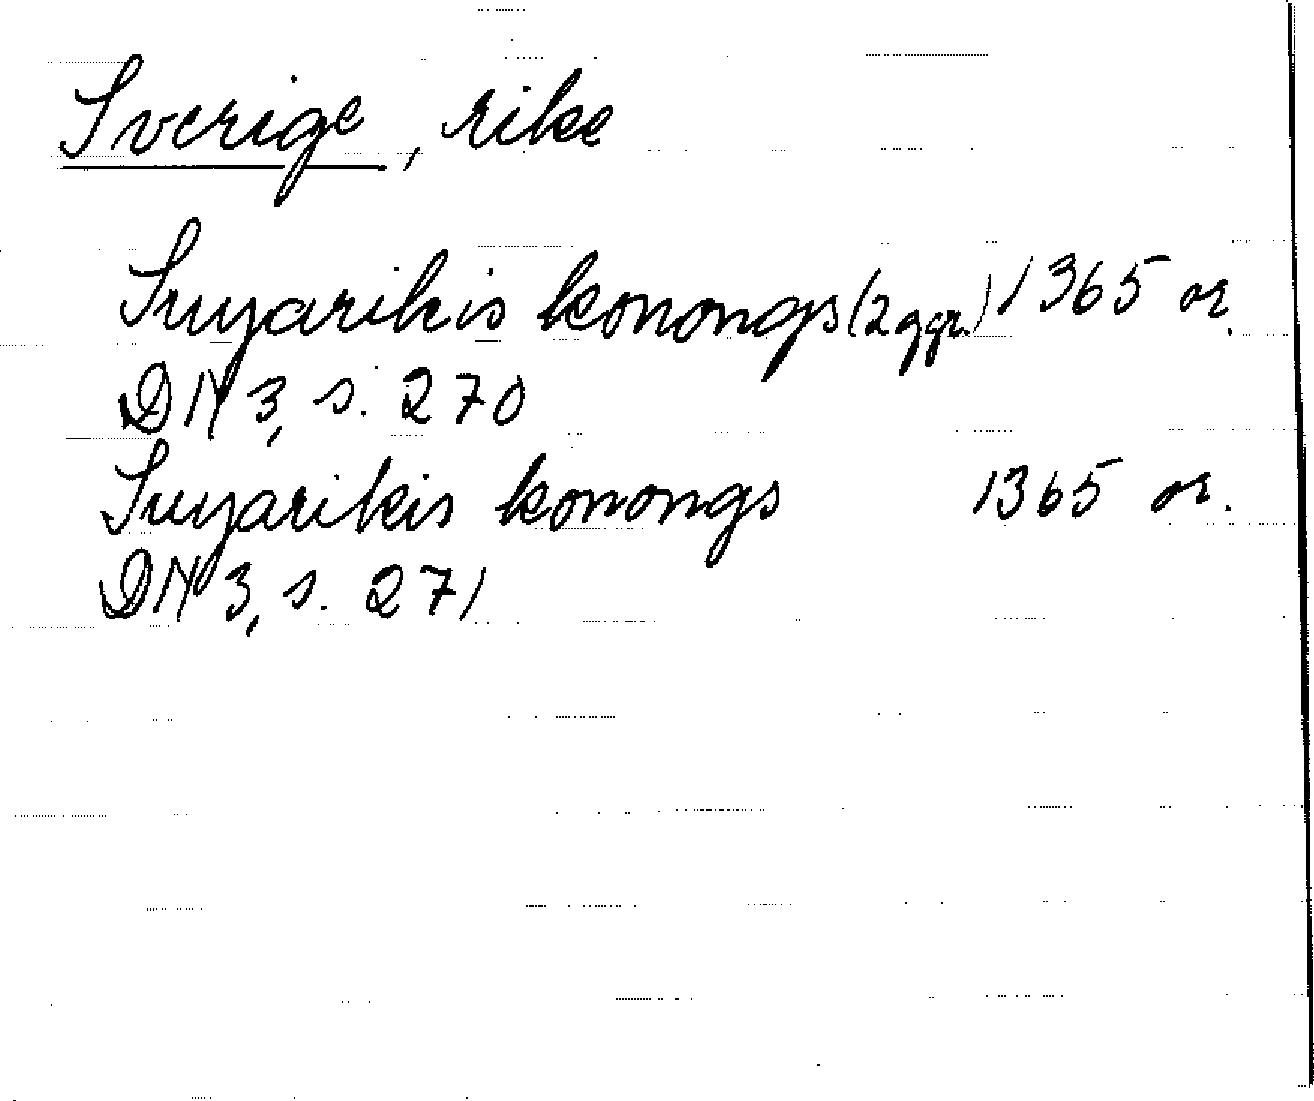 Sverige, rike
Suyarikis konongs (2 ggr.) 1365 or.
DN 3, s. 270
Suyarikis konongs 1365 or.
DN 3, s. 271